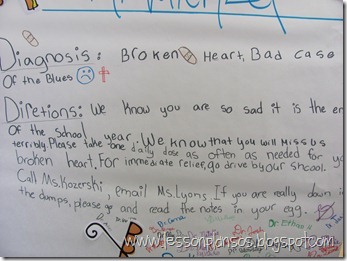 Diagnosis: Broken Heart, Bad Case
Of the Blues
Diretions: We know you are so sad it is the en
Of the school year. We know that you will miss us
terribly. Please take one daily dose as often as needed for yo
broken heart. For immediate relief, go drive by our shcool.
Call Ms. Kozerski, email Ms. Lyons. If you are really down i
the dumps, please go and read the notes in your egg.
www.lessonplansos.blogspot.com